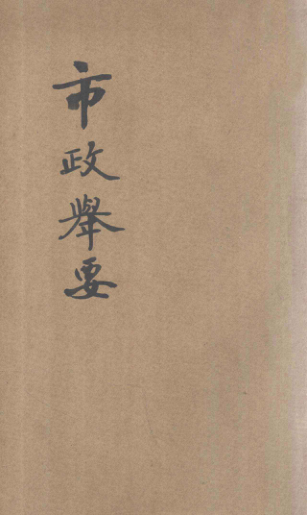 市政舉要